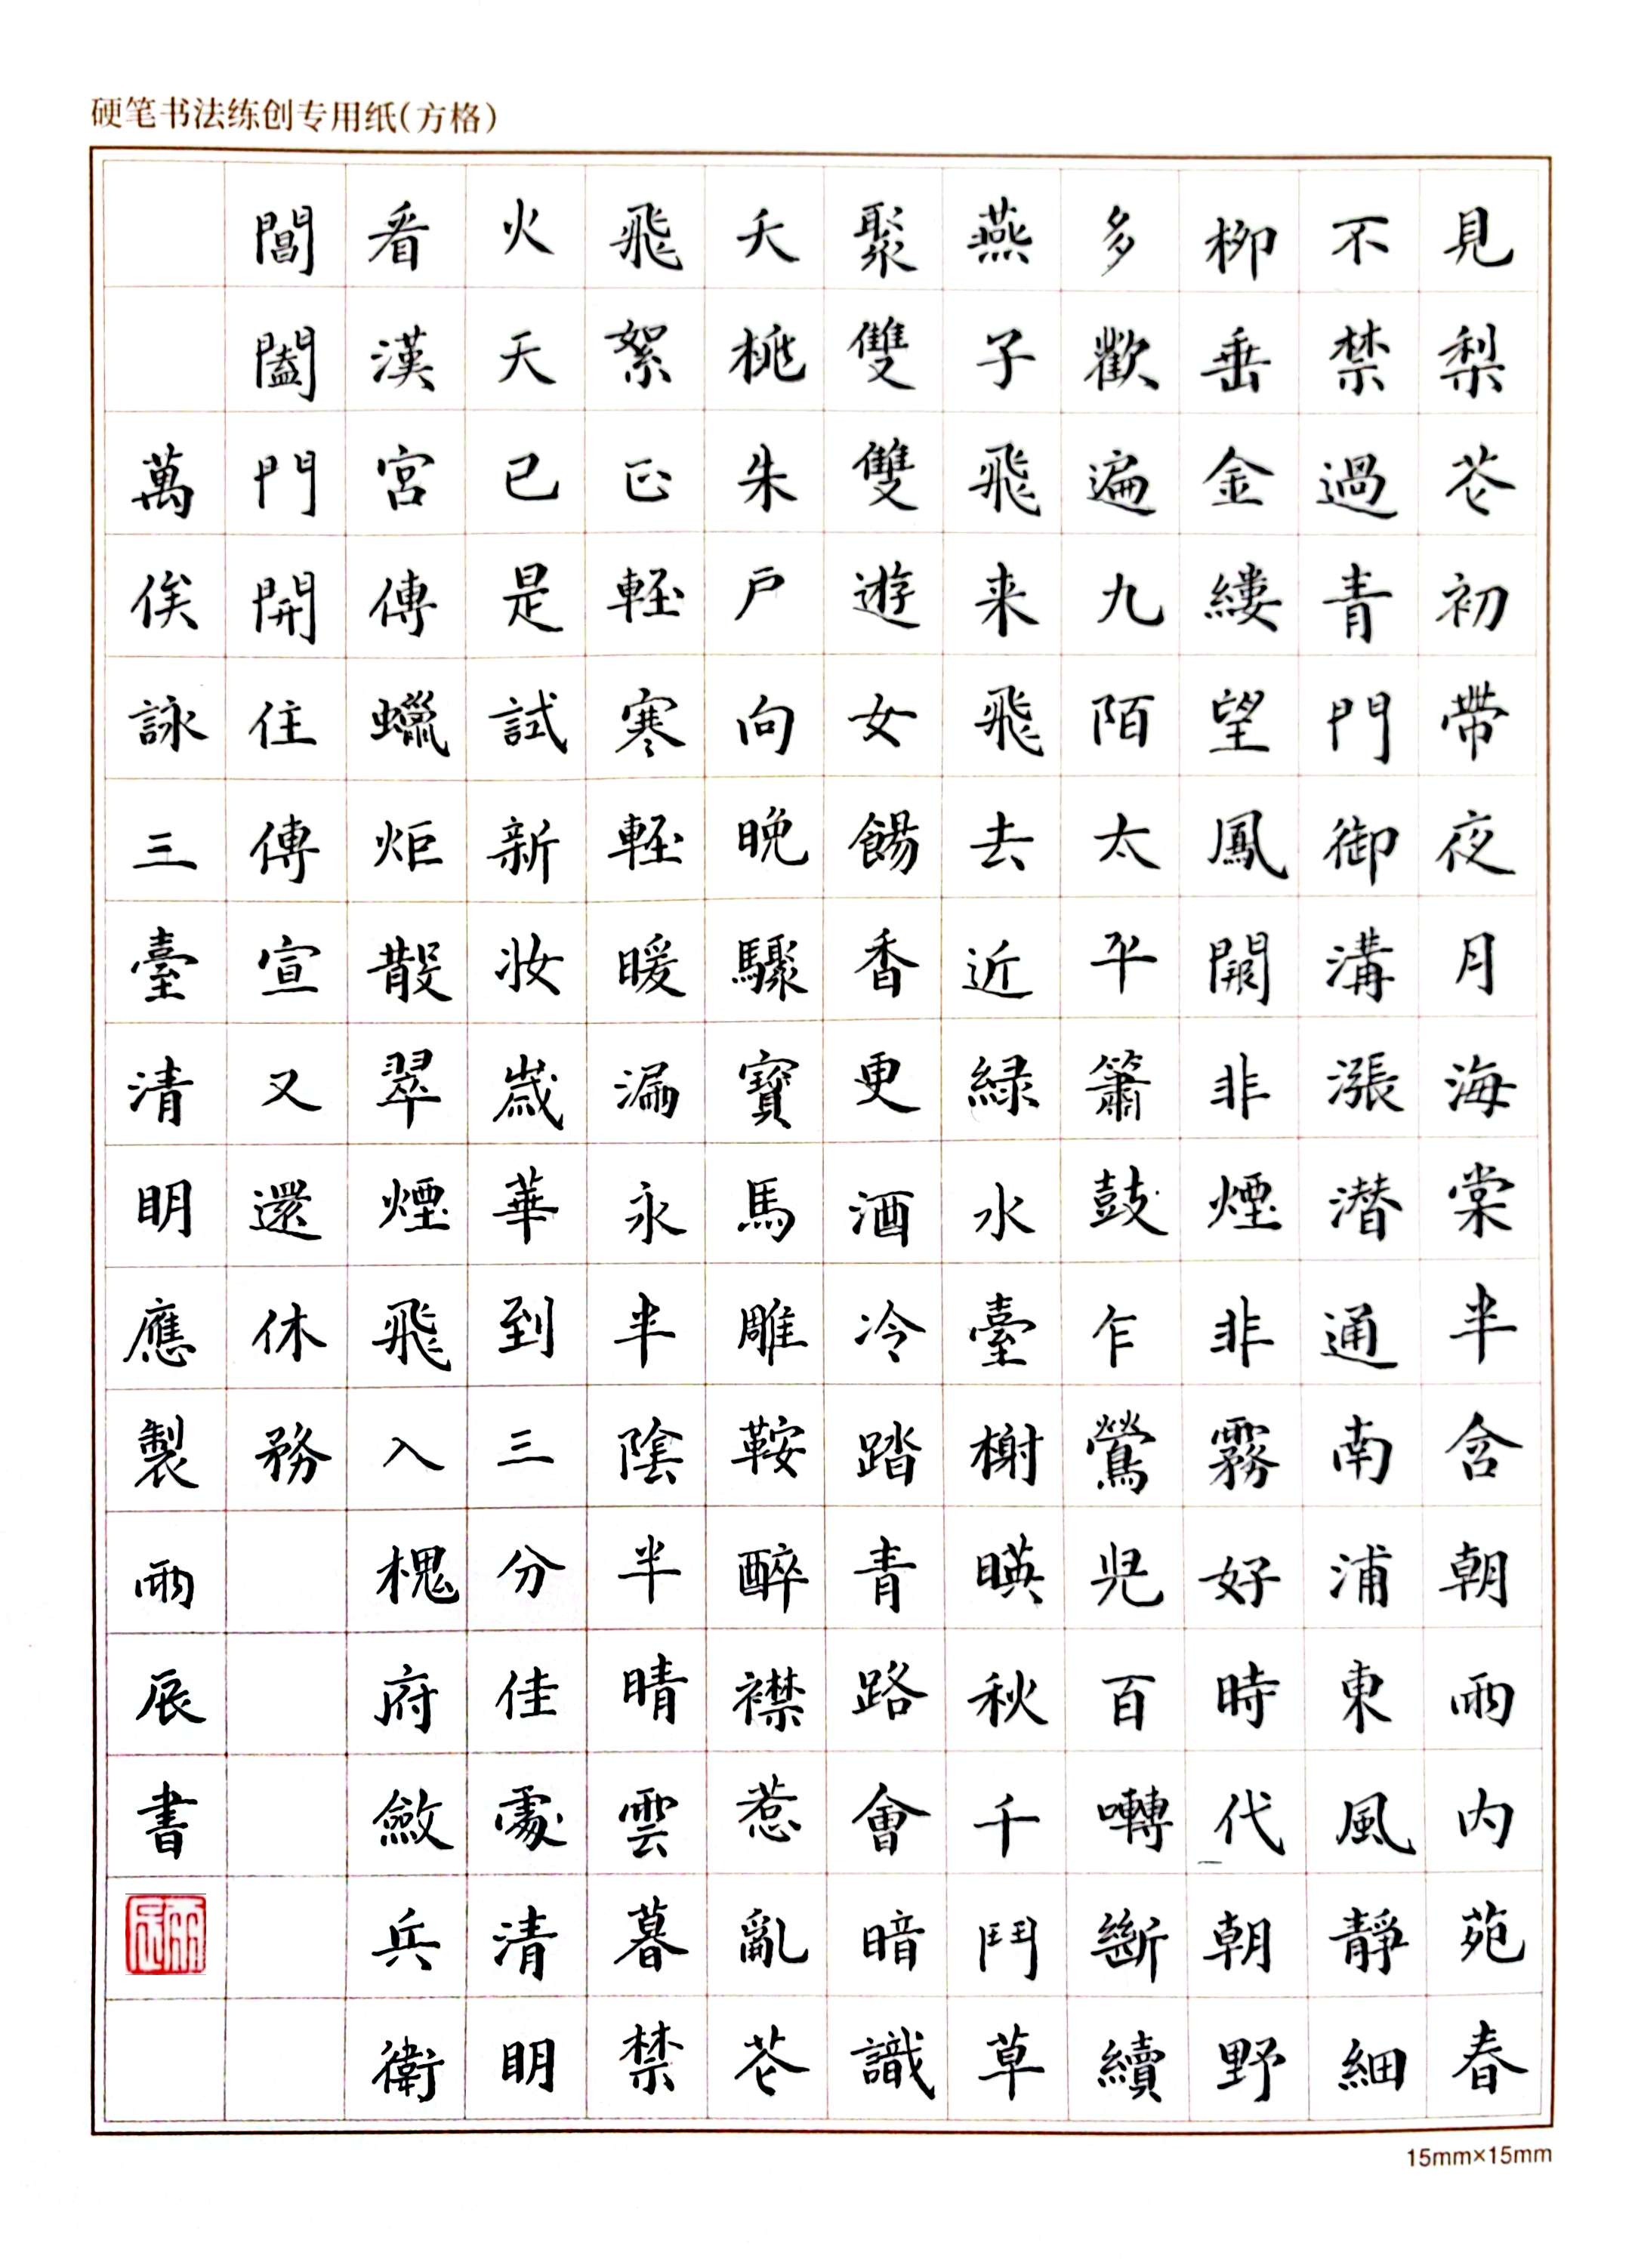 硬笔书法练创专用纸(方格)
見梨花初帶夜月海棠半含朝雨内苑春
不禁過青門御溝漲潜通南浦東風靜細
柳垂金縷望鳳闕非煙非霧好時代朝野
多歡遍九陌太平簫鼓乍鶯兒百囀斷續
燕子飛来飛去近緑水臺榭暎秋千鬥草
聚雙雙遊女餳香更酒冷踏青路會暗識
夭桃朱戶向晚驟寶馬雕鞍醉襟惹亂花
飛絮正輕寒輕暖漏永半陰半晴雲暮禁
火天已是試新妝歲華到三分佳處清明
看漢宮傳蠟炬散翠煙飛入槐府斂兵衛
閶闔門開住傳宣又還休務
萬俟詠三臺清明應製雨辰書
雨辰
15mm×15mm